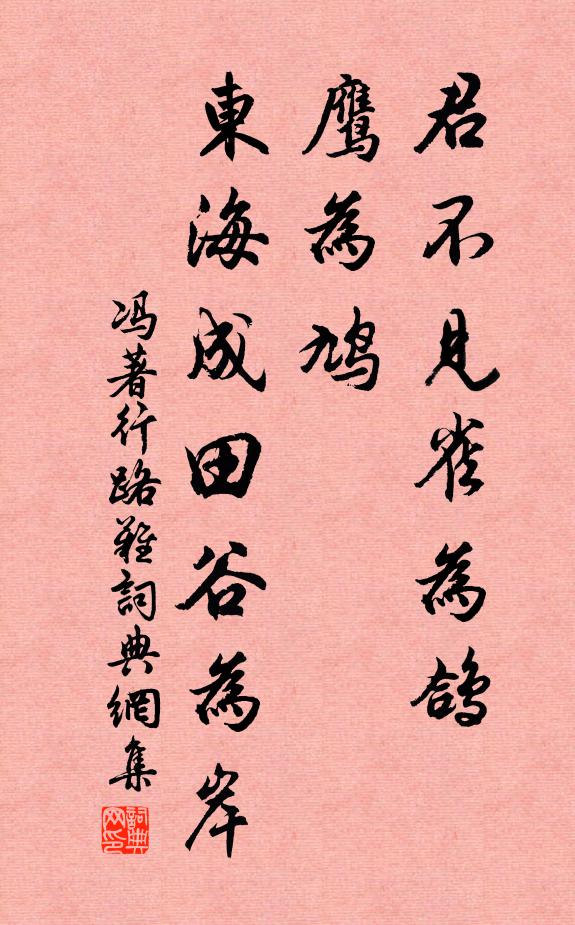 君不見雀為鴿
鷹為鳩
東海成田谷為岸
冯著行路難詞典網集
詞典网印